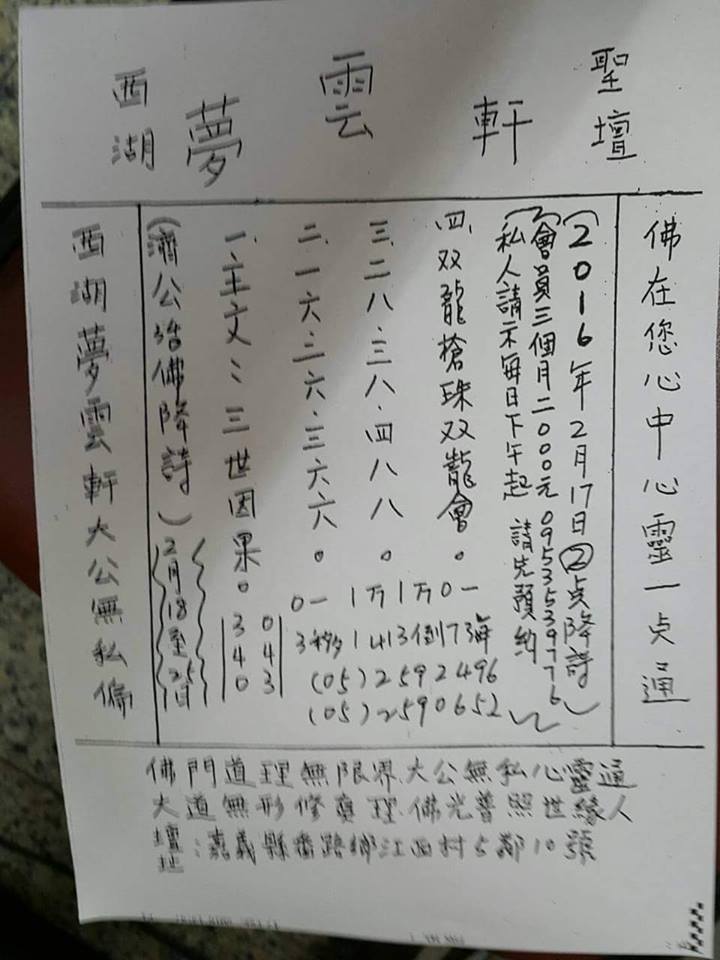 聖壇
雲
軒
夢
西湖
佛在您心中心靈一点通
(2016年2月17日②点降詩)
(會員三個月二000元0953539776
私人請示每日下午起 請先預約)
四、双龍搶珠双龍會。
三、二八.三八.四八八。
二、一六.三六.三六六。
一、主文:三世因果。
(濟公活佛降詩)
2月18至25日
340
043
0一1万1万0一
3秒1413倒73年
(05)2592496
(05)2590652
西湖夢雲軒大公無私偏
佛門道理無限界.大公無私心靈通
大道無形修真理.佛光普照世緣人
壇址:嘉義縣番路鄉江西村5鄰10號